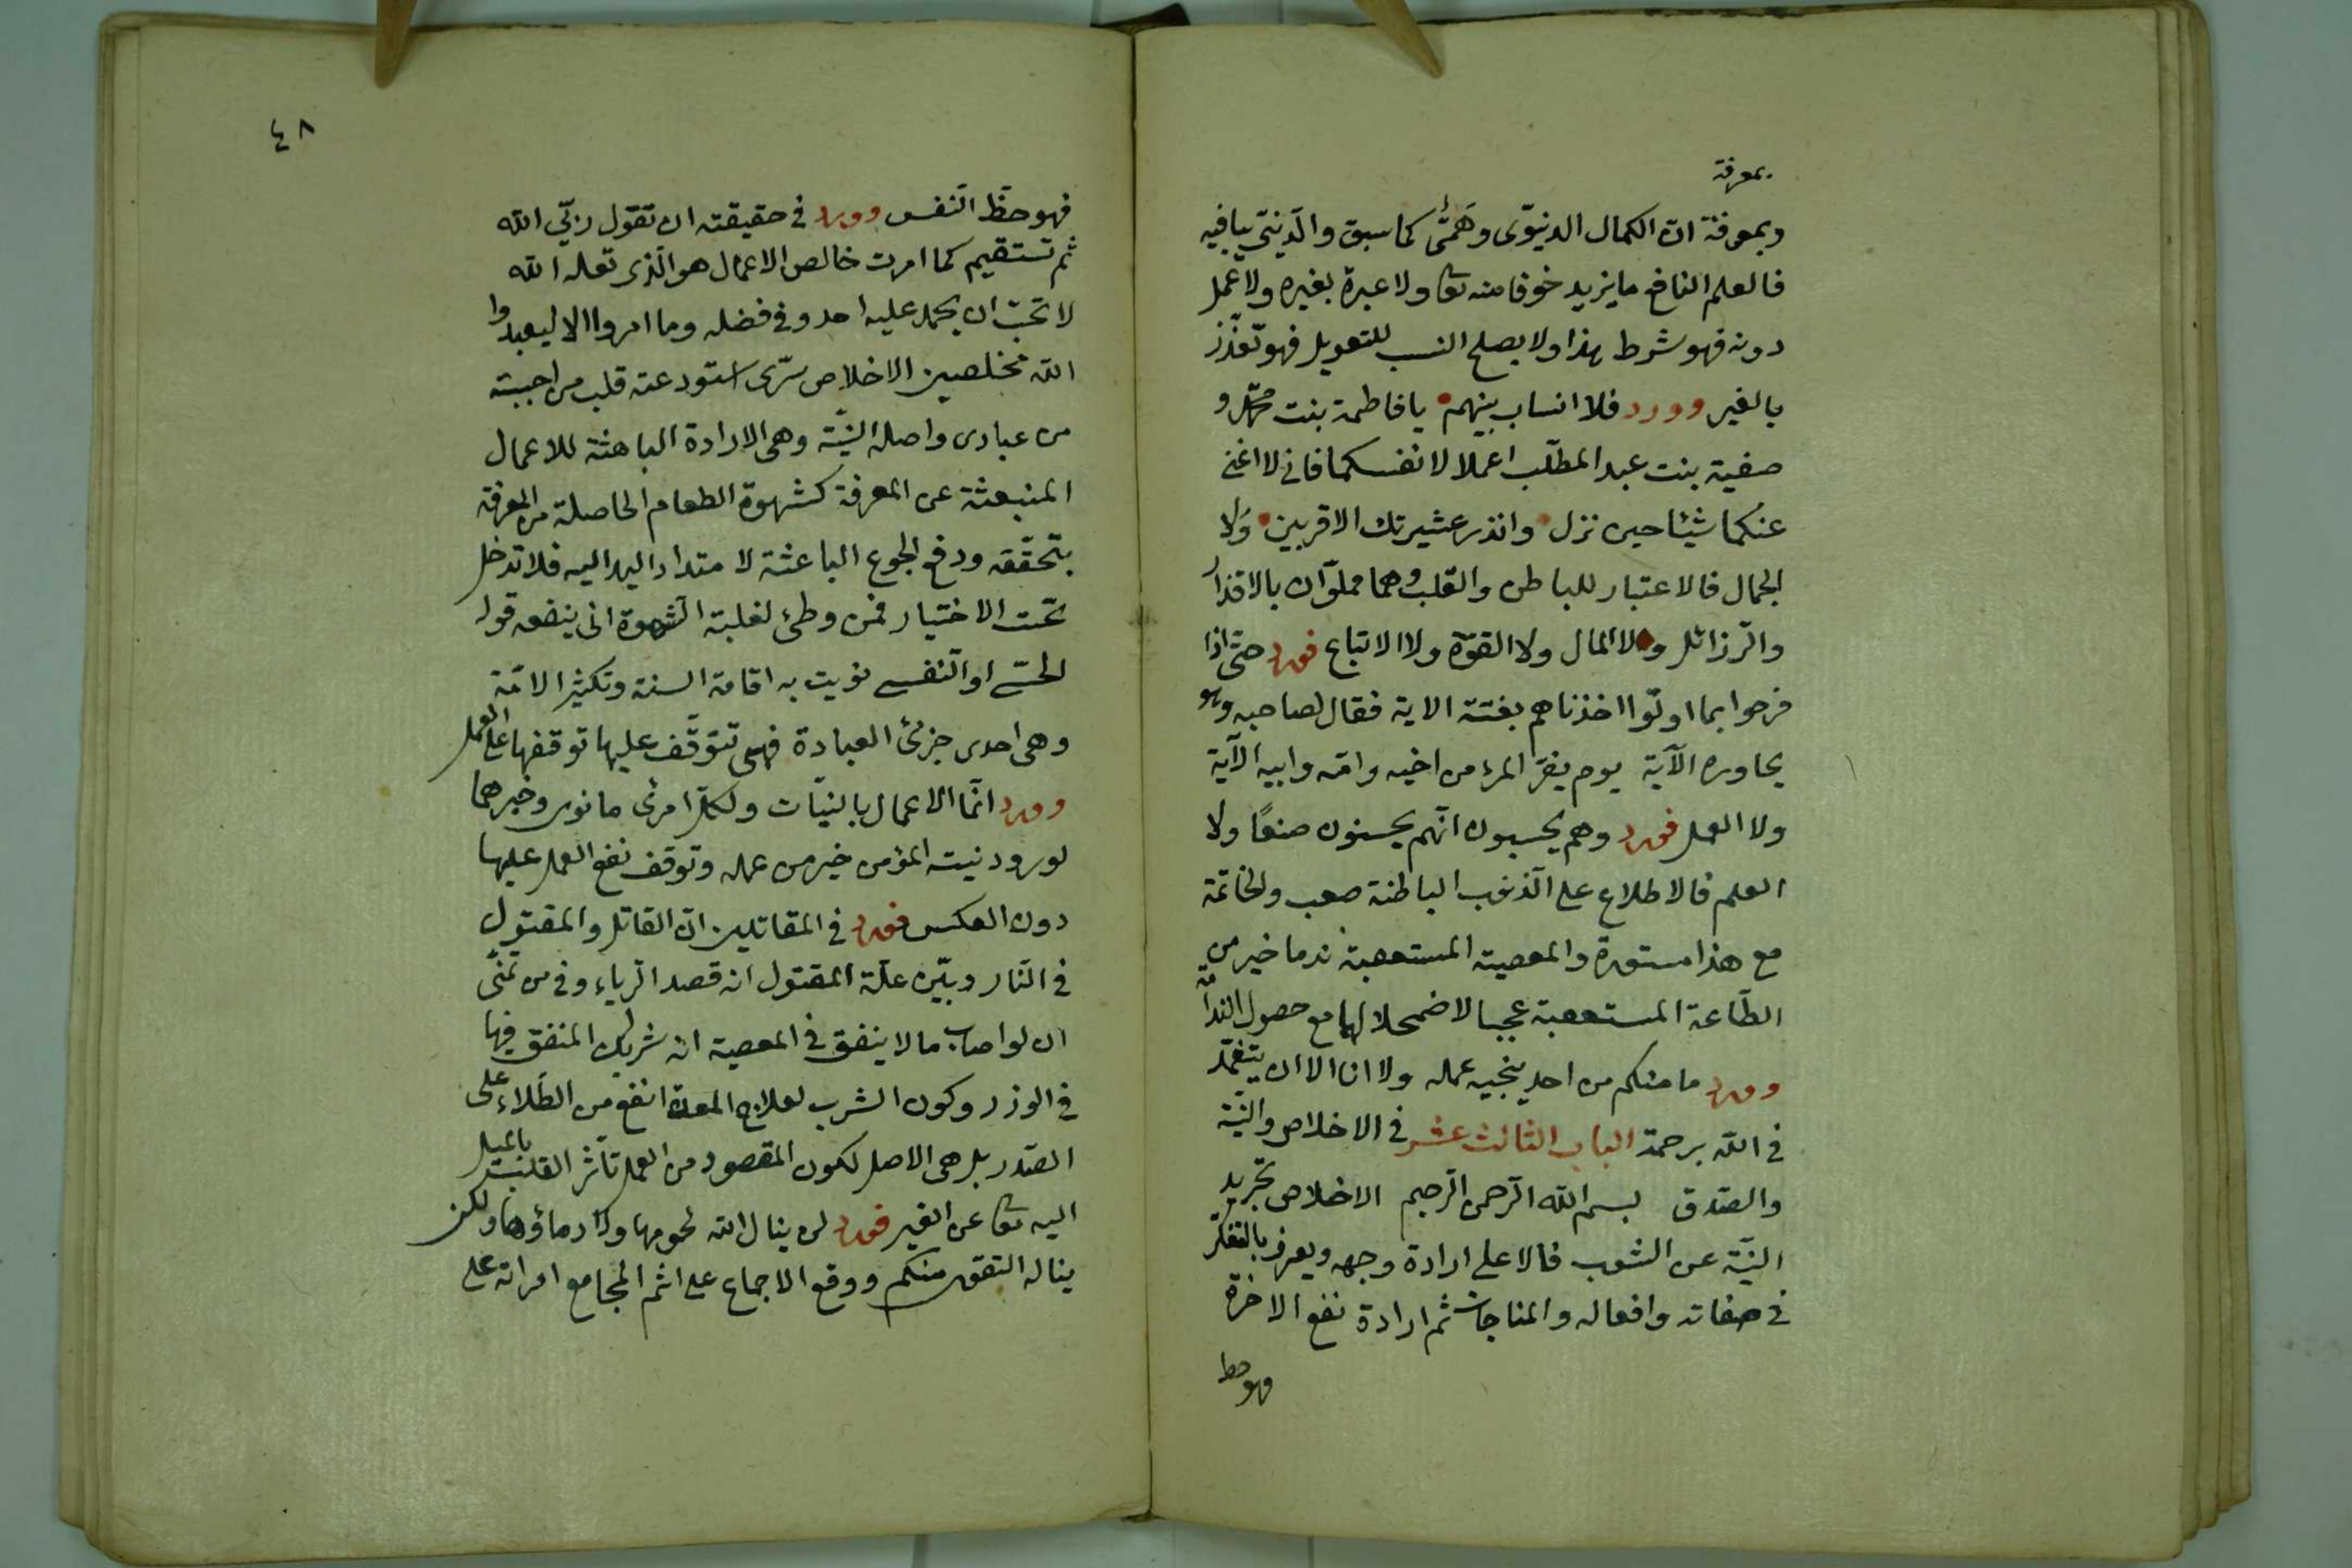 بمعرفة
وبمعرفة ان الكمال الدنيوى وَهَمىّ كما سبق والدّينىّ ينافيه
فالعلم النافع ما يزيد خوفا منه تعا ولا عبرة بغيره ولا عمل
دونه فهو شرط هذا ولا يصلح النسب للتعويل فهو تعزّز
بالغير وورد فلا انساب بينهم يا فاطمة بنت محمّد و
صفية بنت عبد المطلّب اعملا لانفسكما فانى لا اغنى
عنكما شيئا حين نزل وانذر عشيرتك الاقربين وَلا
الجمال فالاعتبار للباطن والقلب وهما مملوّان بالاقذار
والرّذائل ولا المال ولا القوّة ولا الاتباع فورد حتّى اذا
فرحوا بما اوتوا اخذناهم بغتة الاية فقال لصاحبه وهو
يحاوره الآية يوم يفرّ المرء من اخيه وامّه وابيه الآية
ولا العمل فورد وهم يحسبون انّهم يحسنون صنعًا ولا
العلم فالاطلاع على الذنوب الباطنة صعب والخاتمة
مع هذا مستورة والمعصية المستعقبة ندما خير من
الطّاعة المستعقبة عجبا لاضمحلالها مع حصول الندامة
وورد ما منكم من احد ينجيه عمله ولا انا الا ان يتغمّد
فى الله برحمة الباب الثالث عشر فى الاخلاص والنيّة
والصّدق بسم الله الرّحمن الرّحيم الاخلاص تجريد
النيّة عن الشوب فالاعلى ارادة وجهه ويعرف بالتفكّر
فى صفاته وافعاله والمناجات ثم ارادة نفع الاخرة
فهو حظ
٤٨
فهو حظّ النّفس وورد فى حقيقته ان تقول ربّى الله
ثم تستقيم كما امرت خالص الاعمال هو الّذى تعله الله
لا تحبّ ان يحمد عليه احد وفى فضله وما امروا الا ليعبدوا
الله مخلصين الاخلاص سرّى استودعته قلب من احببته
من عبادى واصله النيّة وهى الارادة الباعثة للاعمال
المنبعثة عن المعرفة كشهوة الطعام الحاصلة من المعرفة
بتحقّقه ودفع الجوع الباعثة لامتداد اليد اليه فلا تدخل
تحت الاختيار فمن وطئ لغلبة الشهوة انى ينفعه قول
الحسّى او النّفسى نويت به اقامة السنة وتكثير الامّة
وهى احدى جزئى العبادة فهى تتوقّف عليها توقفها على العمل
وورد انّما الاعمال بالنيّات ولكلّ امرئ ما نوى وخيرهما
لورود نية المؤمن خير من عمله وتوقف نفع العمل عليها
دون العكس فورد فى المقاتلين انّ القاتل والمقتول
فى النّار وبيّن علّة المقتول انه قصد الرّياء وفى من تمنّى
ان لو اصاب مالا ينفق فى المعصية انه شريك المنفق فيها
فى الوزر وكون الشرب لعلاج المعدة انفع من الطّلاء على
الصّدر بل هى الاصل لكون المقصود من العمل تأثر القلب بالميل
اليه تعا عن الغير فورد لن ينال الله لحومها ولا دماؤها ولكن
يناله التقوى منكم ووقع الاجماع على اثم المجامع امراته على